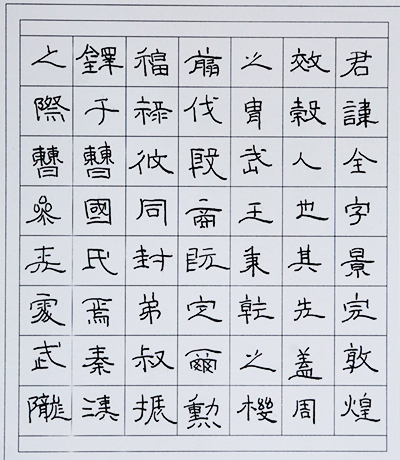 君諱全字景完敦煌
效穀人也其先蓋周
之胄武王秉乾之機
翦伐殷商既定爾勳
福祿攸同封弟叔振
鐸于曹國氏焉秦漢
之際曹參夾處武隴